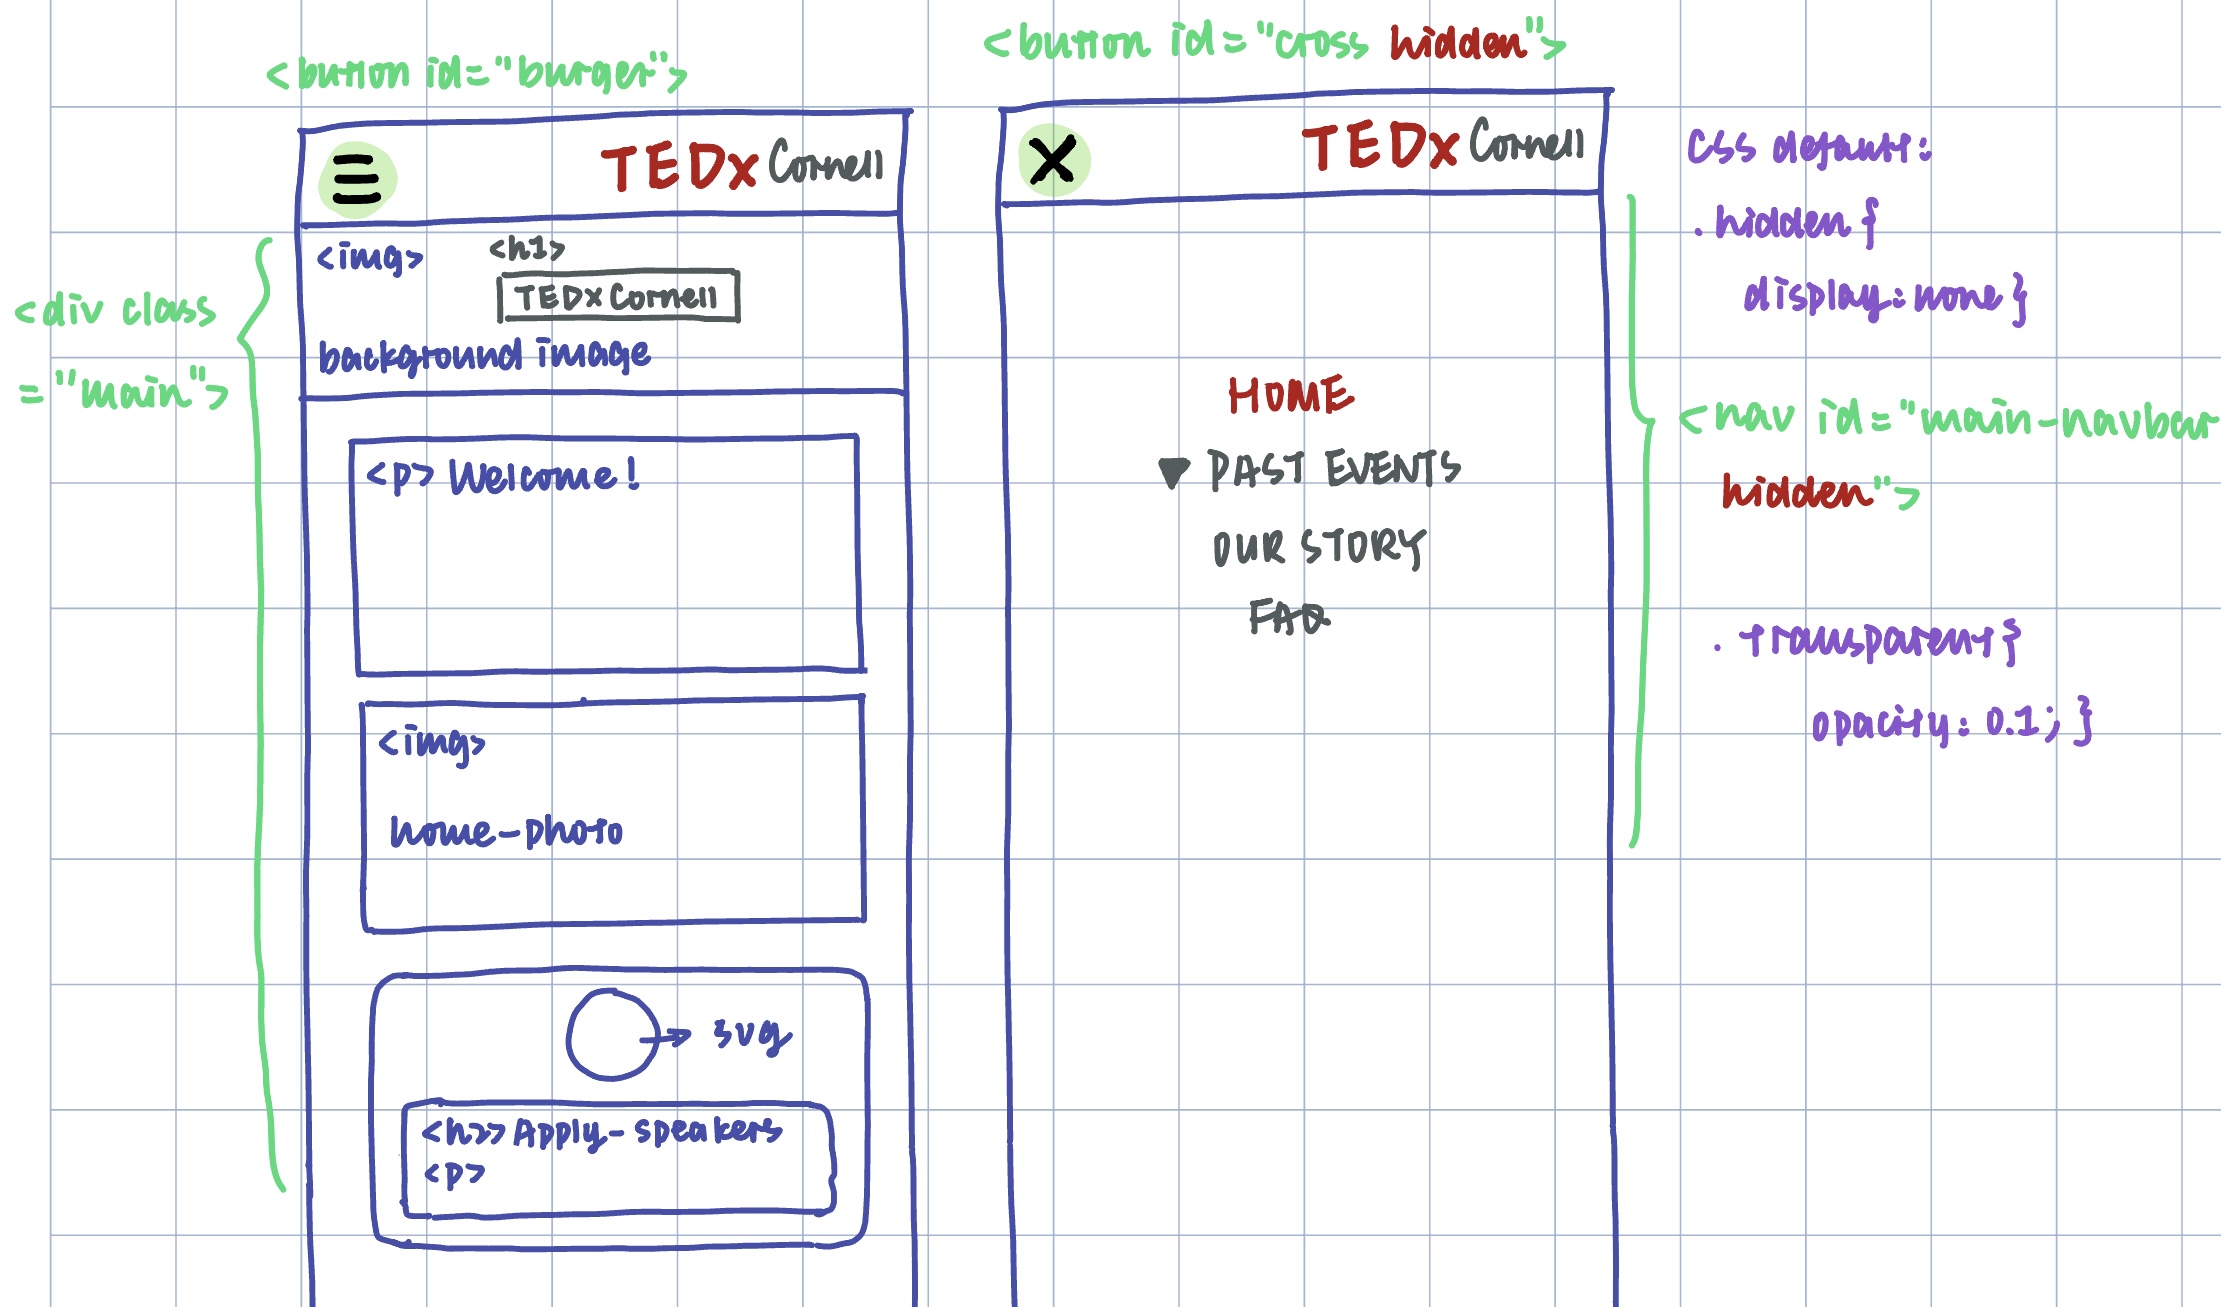 <button id="burger">
TEDx Cornell
<div class
="main">
<img>
<h1>
TEDx Cornell
background image
<p> Welcome!
<img>
home-photo
svg
<h2> Apply-speakers
<p>
<button id="cross hidden">
X
TEDx Cornell
HOME
▼ PAST EVENTS
OUR STORY
FAQ
<nav id="main-navbar
hidden">
CSS default:
.hidden{
display:none}
.transparent{
opacity:0.1;}